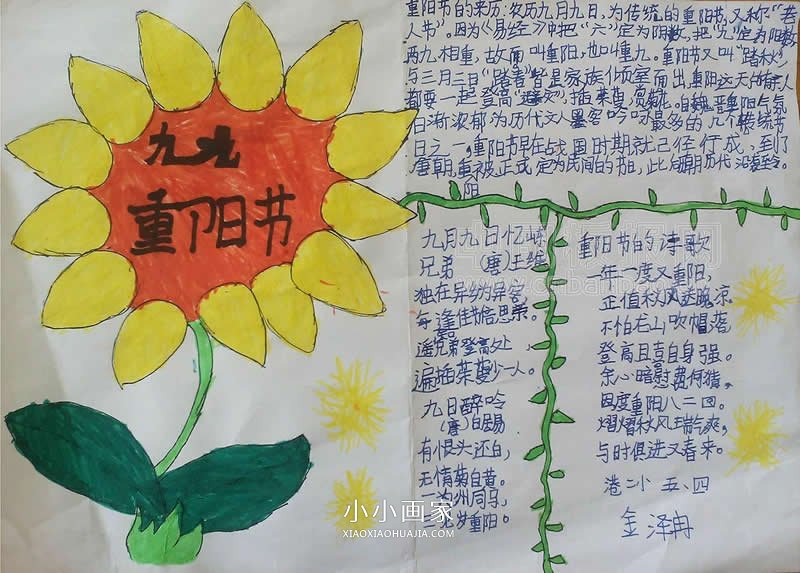 九九
重阳节
重阳节的来历:农历九月九日,为传统的重阳节,又称“老
人节”。因为《易经》中把“六”定为阴数,把“九”定为阳数
两九相重,故而叫重阳,也叫重九。重阳节又叫“踏秋”
与三月三日“踏春”皆是家族倾室而出,重阳这天
都要一起登高“避灾”,插茱萸,赏
日渐浓郁为历代文人墨客吟咏最多的几个传统节
日之一,重阳节早在战国时期就已经行成,到了
唐朝,重被正式定为民间的节日,此后历代沿袭至今。
阳
九月九日忆
兄弟 (唐)王维
独在异乡为异客,
每逢佳节倍思亲。
遥兄弟登高处
遍插茱萸少一人。
九日醉吟
(唐)白居易
有恨头还白,
无情菊自黄。
一为州司马,
三岁重阳。
重阳节的诗歌
一年一度又重阳,
正值秋风送晚凉。
不怕龙山吹帽落
登高且喜自身强。
余心暗
因度重阳八二回。
熠熠秋风
与时俱进又春来。
港二小 五、四
金泽冉
小小画家
XIAOXIAOHUAJIA.COM